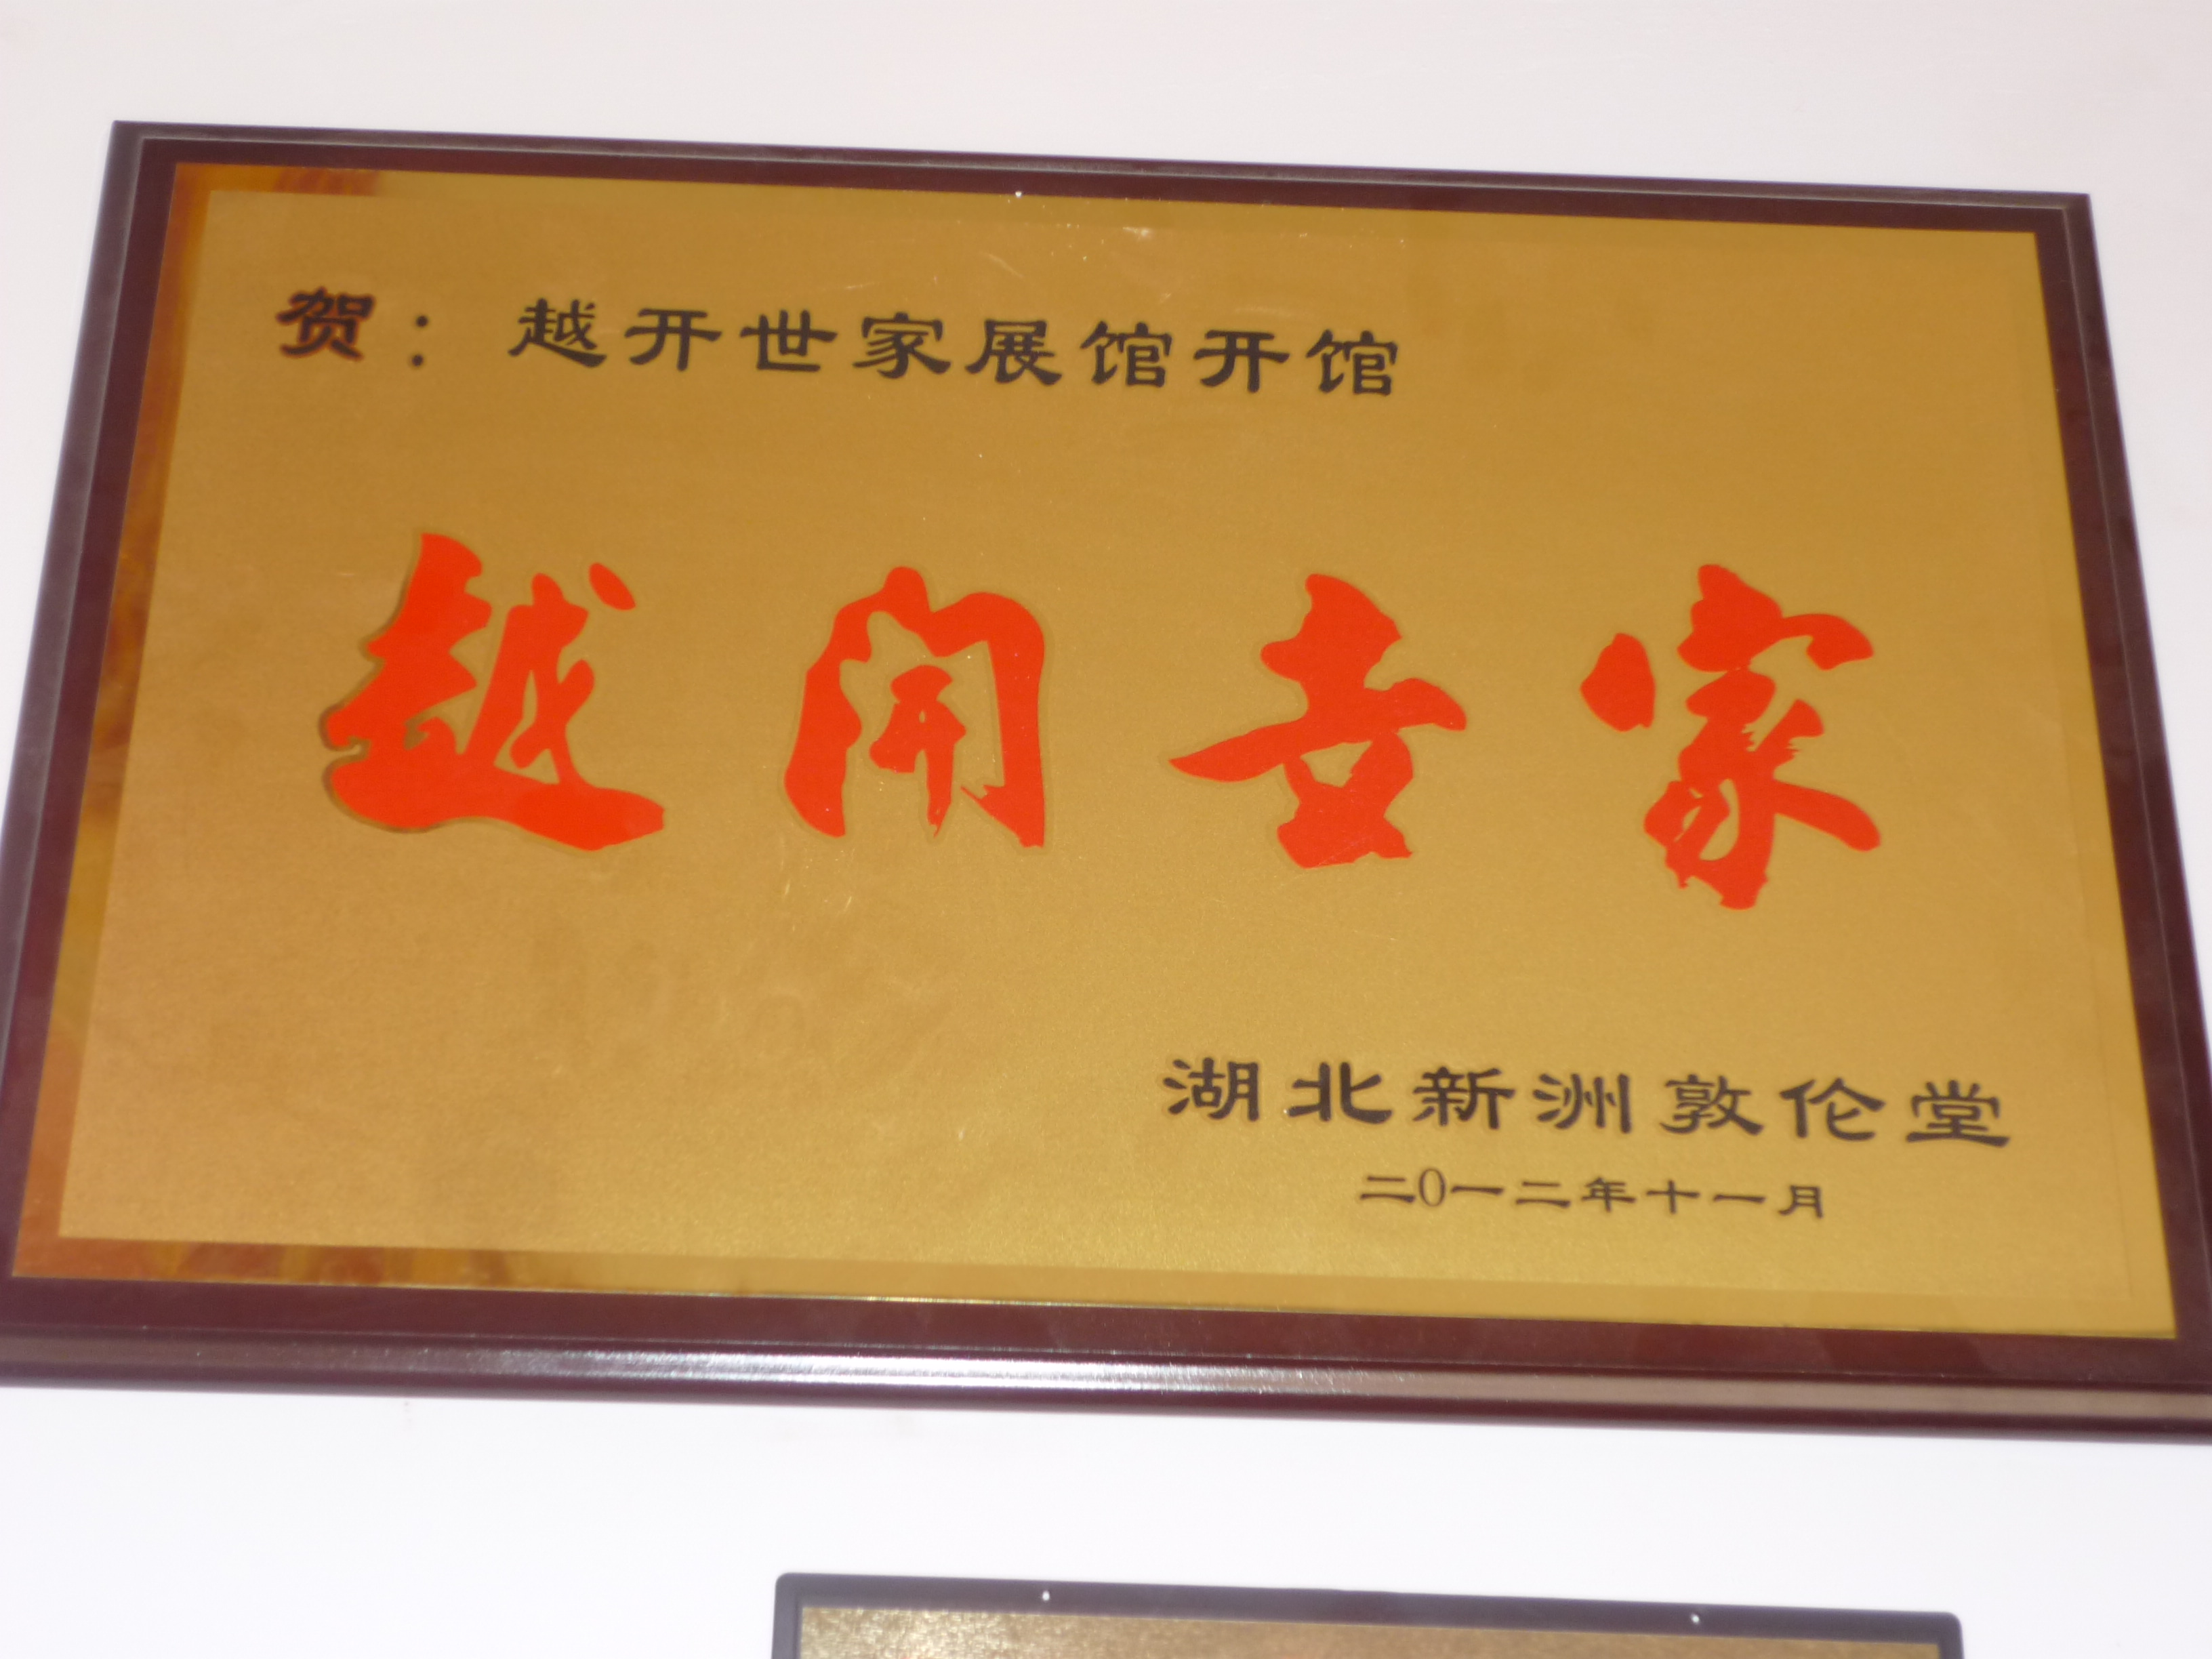 贺：越开世家展馆开馆
越開世家
湖北新洲敦伦堂
二0一二年十一月